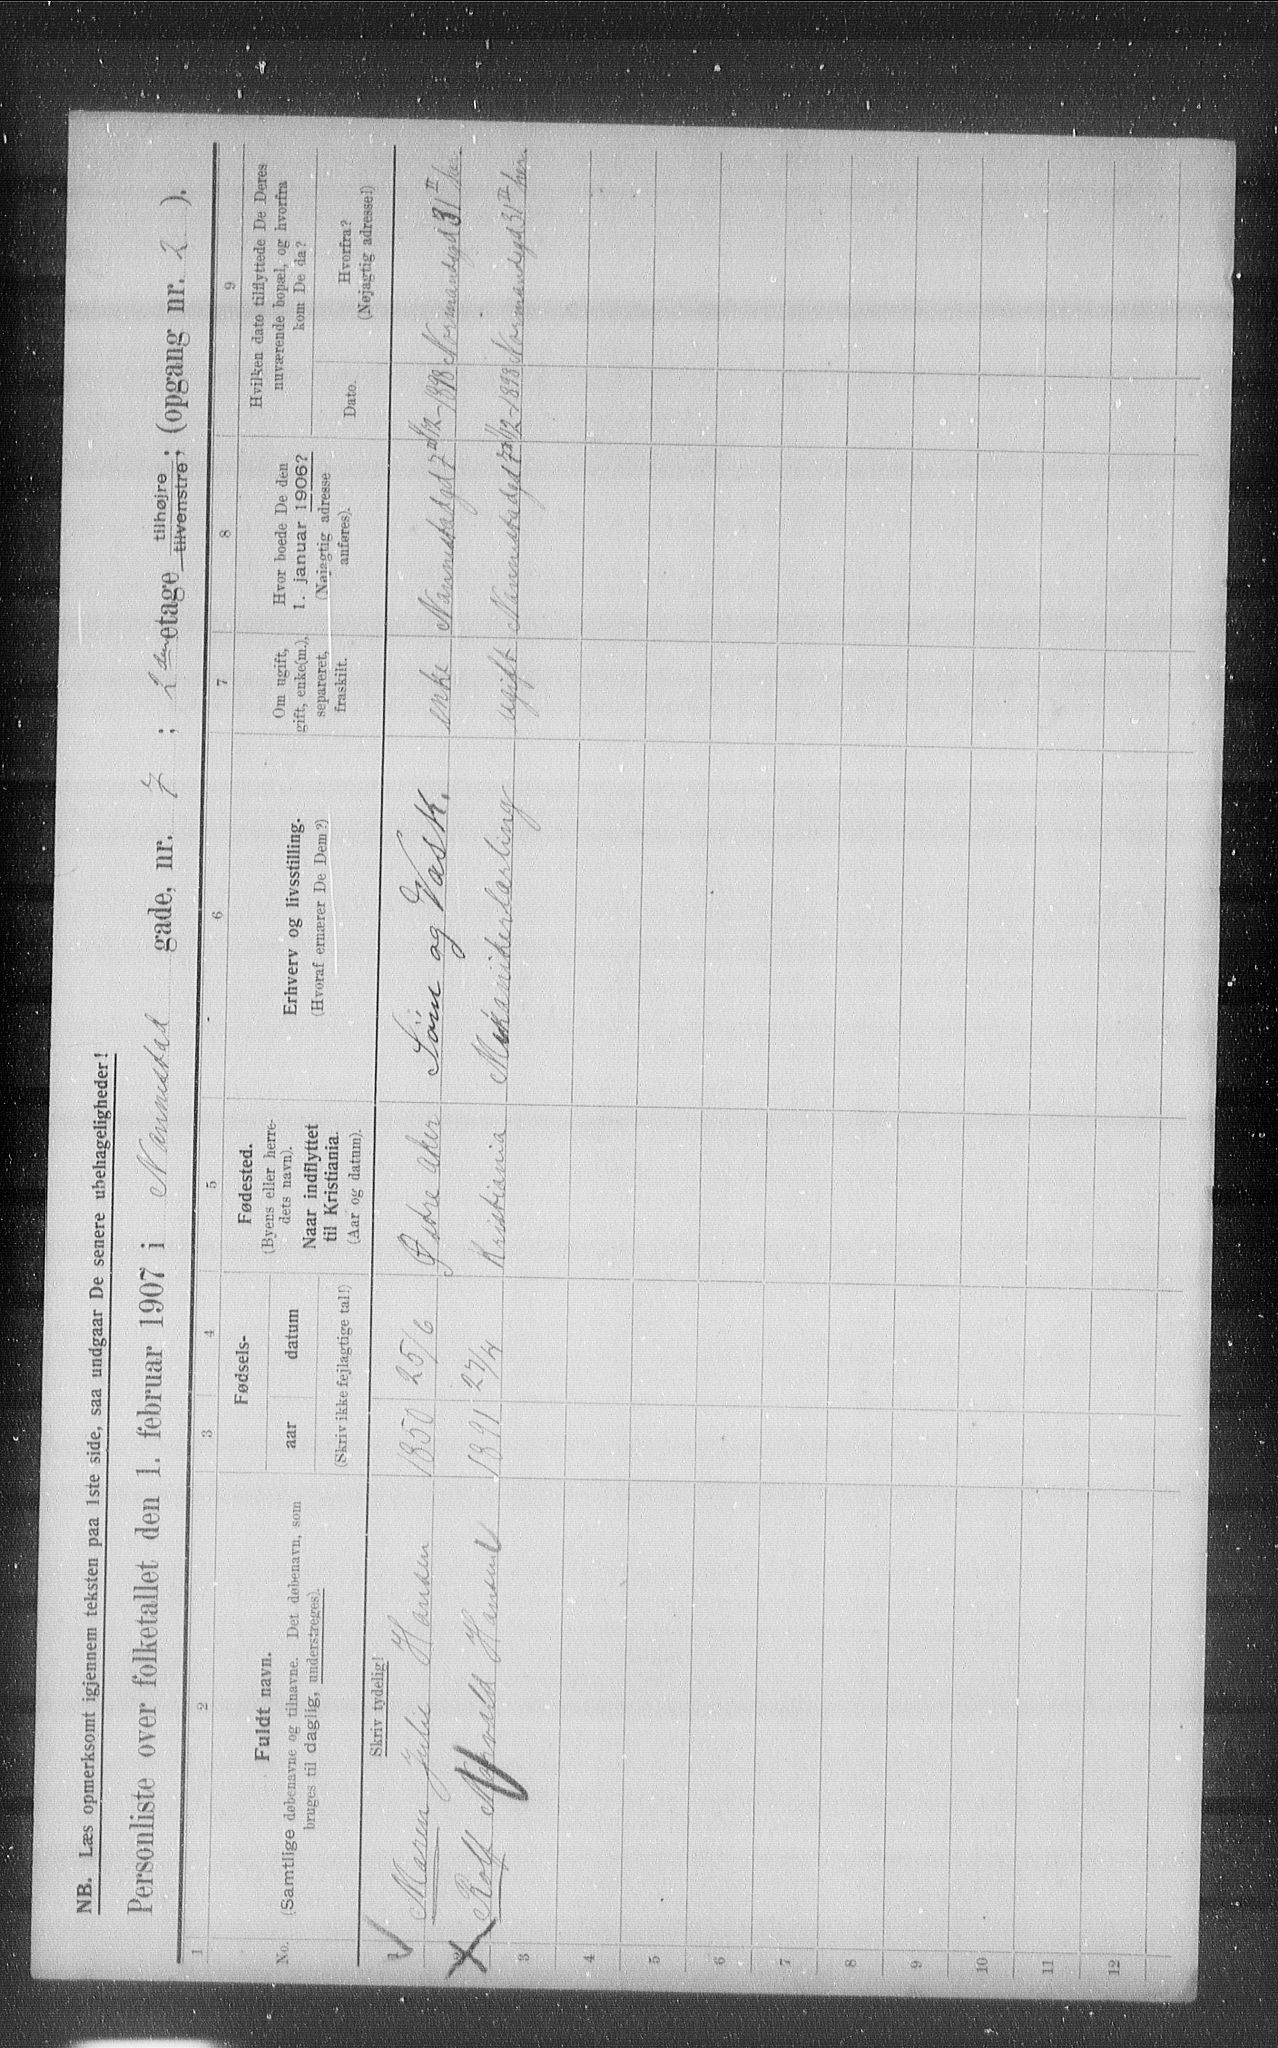 NB. Læs opmerksomt igjennem teksten paa 1ste side, saa undgaar De senere ubehageligheder!
Personliste over folketallet den 1. februar 1907 i Nannestad gade, nr. 7 ; 2den etage tilhøjre tilvenstre; (opgang nr. 2 ).
1 2 3 4 5 6 7 8 9
No.
Fuldt navn.
(Samtlige døbenavne og tilnavne. Det døbenavn, som
bruges til daglig, understreges).
Fødsels-
aar datum
(Skriv ikke fejlagtige tal!)
Fødested.
(Byens eller herre-
dets navn).
Naar indflyttet
til Kristiania.
(Aar og datum).
Erhverv og livsstilling.
(Hvoraf ernærer De Dem?)
Om ugift,
gift, enke(m.),
separeret,
fraskilt.
Hvor boede De den
1. januar 1906?
(Nøjagtig adresse
anføres).
Hvilken dato tilflyttede De Deres
nuværende bopæl, og hvorfra
kom De da?
Dato.
Hvorfra?
(Nøjagtig adresse!)
Skriv tydelig!
1 Maren Julie Hansen 1850 25/6 Østre Aker Söm og Vask. enke Nannestadgd 7 II 1/12-1898 Normandsgd 31 II her.
2 Rolf Hansen 1891 27/4 Kristiania Mekanikerlærling ugift Nannestadgd 7 II 1/12-1898 Normandsgd 31 II her.
3
4
5
6
7
8
9
10
11
12